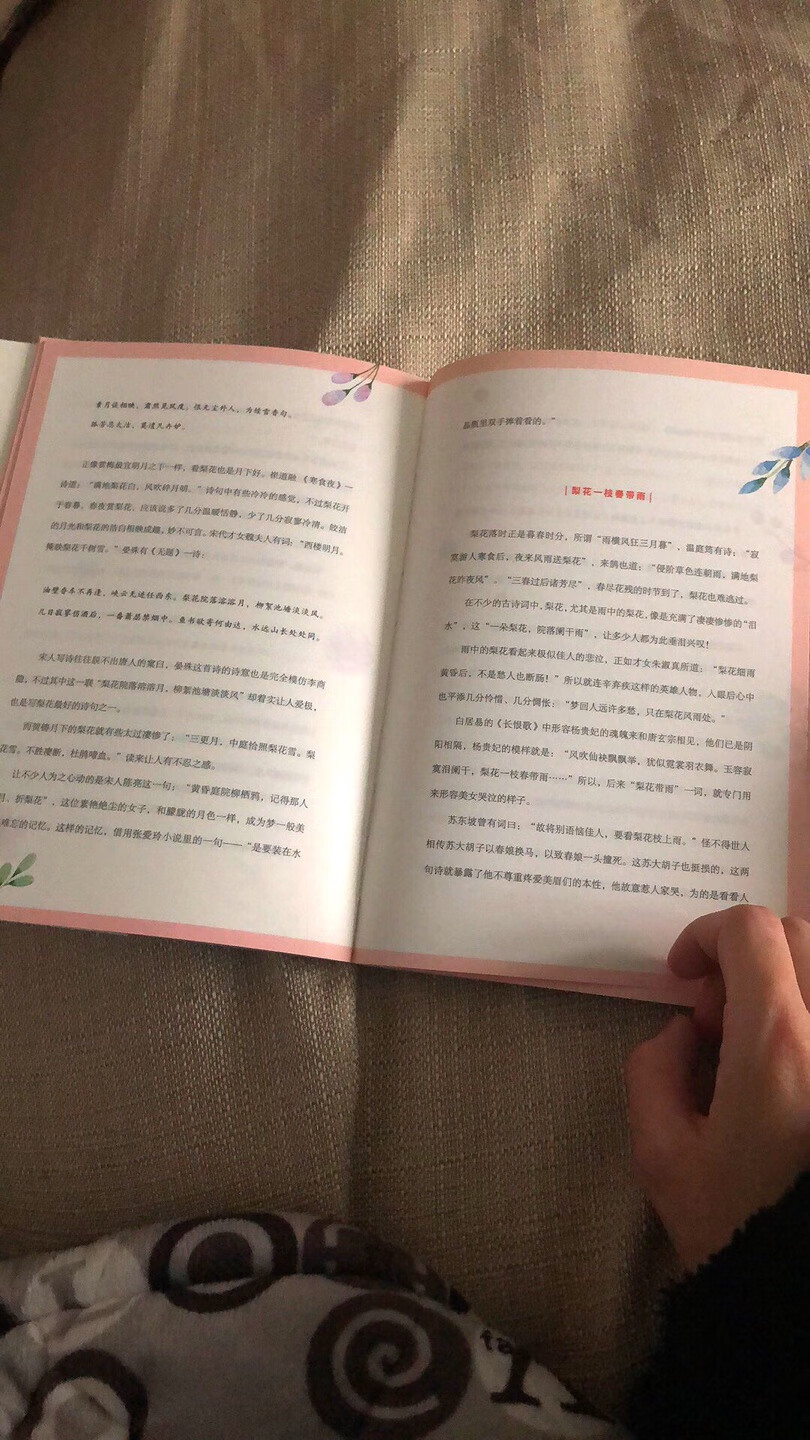 素月谈相映，萧然见风度。恨无尘外人，为续雪香句。
孤芳忌太洁，莫遣凡卉妒。
正像雪梅最宜明月之下一样，看梨花也是月下好。崔道融《寒食夜》一
诗道：“满地梨花白，风吹碎月明。”诗句中有些冷冷的感觉，不过梨花开
于春暮，春夜赏梨花，应该说多了几分温暖恬静，少了几分寂寥冷清。皎洁
的月光和梨花的洁白相映成趣，妙不可言。宋代才女魏夫人有词：“西楼明月。
掩映梨花千树雪。”晏殊有《无题》一诗：
油壁香车不再逢，峡云无迹任西东。梨花院落溶溶月，柳絮池塘淡淡风。
几日寂寥伤酒后，一番萧瑟禁烟中。鱼书欲寄何由达，水远山长处处同。
宋人写诗往往脱不出唐人的窠臼，晏殊这首诗的诗意也是完全模仿李商
隐，不过其中这一联“梨花院落溶溶月，柳絮池塘淡淡风”却着实让人爱极，
也是写梨花最好的诗句之一。
而贺铸月下的梨花就有些太过凄惨了：“三更月，中庭恰照梨花雪。梨
花雪。不胜凄断，杜鹃啼血。”读来让人有不忍之感。
让不少人为之心动的是宋人陈亮这一句：“黄昏庭院柳栖鸦，记得那人
月、折梨花”，这位素艳绝尘的女子，和朦胧的月色一样，成为梦一般美
难忘的记忆。这样的记忆，借用张爱玲小说里的一句——“是要装在水
晶瓶里双手捧着看的。”
|梨花一枝春带雨|
梨花落时正是暮春时分，所谓“雨横风狂三月暮”，温庭筠有诗：“寂
寞游人寒食后，夜来风雨送梨花”，来鹄也道：“侵阶草色连朝雨，满地梨
花昨夜风”。“三春过后诸芳尽”，春尽花残的时节到了，梨花也难逃过。
在不少的古诗词中，梨花，尤其是雨中的梨花，像是充满了凄凄惨惨的“泪
水”，这“一朵梨花，院落阑干雨”，让多少人都为此垂泪兴叹！
雨中的梨花看起来极似佳人的悲泣，正如才女朱淑真所道：“梨花细雨
黄昏后，不是愁人也断肠！”所以就连辛弃疾这样的英雄人物，入眼后心中
也平添几分怜惜、几分惆怅：“梦回人远许多愁，只在梨花风雨处。”
白居易的《长恨歌》中形容杨贵妃的魂魄来和唐玄宗相见，他们已是阴
阳相隔，杨贵妃的模样就是：“风吹仙袂飘飘举，犹似霓裳羽衣舞。玉容寂
寞泪阑干，梨花一枝春带雨……”所以，后来“梨花带雨”一词，就专门用
来形容美女哭泣的样子。
苏东坡曾有词曰：“故将别语恼佳人，要看梨花枝上雨。”怪不得世人
相传苏大胡子以春娘换马，以致春娘一头撞死。这苏大胡子也挺损的，这两
句诗就暴露了他不尊重疼爱美眉们的本性，他故意惹人家哭，为的是看看人